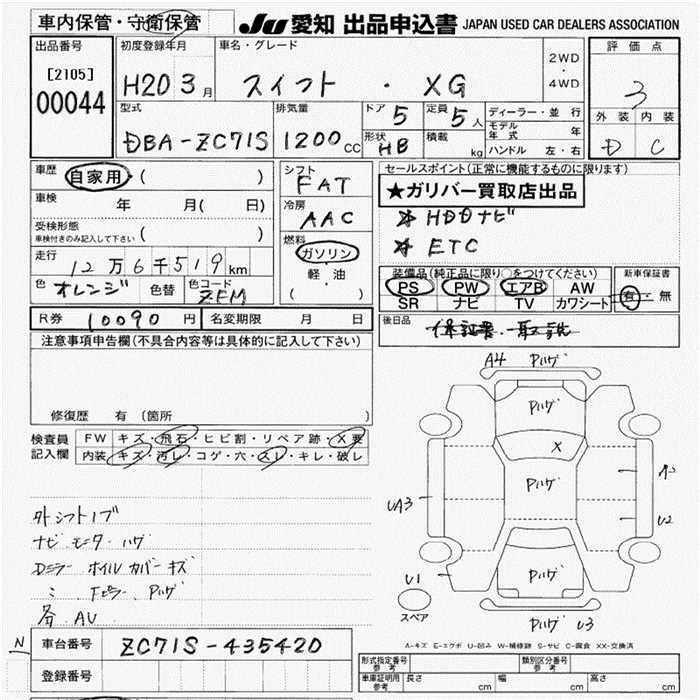 車内保管・守衛保管 JU 愛知 出品申込書 JAPAN USED CAR DEALERS ASSOCIATION
出品番号 [2105] 00044
初度登録年月 H20 3月
車名・グレード スイフト ・ XG
2WD ・ 4WD
評価点 3
外装 D 内装 C
型式 DBA-ZC71S
排気量 1200cc
ドア 5
定員 5人
形状 HB
積載 kg
ディーラー・並行
モデル年式 年
ハンドル 左・右
車歴 自家用 ( )
車検 年 月( 日)
受検形態 ( )
車検付きのみ記入して下さい
走行 12万6千519km
色 オレンジ 色替 色コード ZEM
シフト FAT
冷房 AAC
燃料 ガソリン
軽・油
( )
セールスポイント(正常に機能するものに限ります)
★ガリバー買取店出品
☆ HDDナビ
☆ ETC
装備品(純正品に限り○をつけてください)
PS PW エアB AW
SR ナビ TV カワシート
新車保証書 有・無
R券 10090円 名変期限 月 日
後日品 保証書 取説
注意事項申告欄(不具合内容等は具体的に記入して下さい)
修復歴 有(箇所 )
検査員記入欄
FW キズ・飛石・ヒビ割・リペア跡・X要
内装 キズ・汚レ・コゲ・穴・スレ・キレ・破レ
外シフトノブ
ナビモニターハゲ
Dミラー ホイルカバーキズ
〃 Fピラー Pハゲ
各AU
A4 Pハゲ
Pハゲ
X
Pハゲ
UA3
U2
Pハゲ
U1
スペア
Pハゲ U3
A-キズ E-エクボ U-凹み W-補修跡 S-サビ C-腐食 XX-交換済
N 車台番号 ZC71S-435420
登録番号
形式指定番号 参考 類別区分番号 参考
車庫証明用 参考 長さ cm 幅 cm 高さ cm